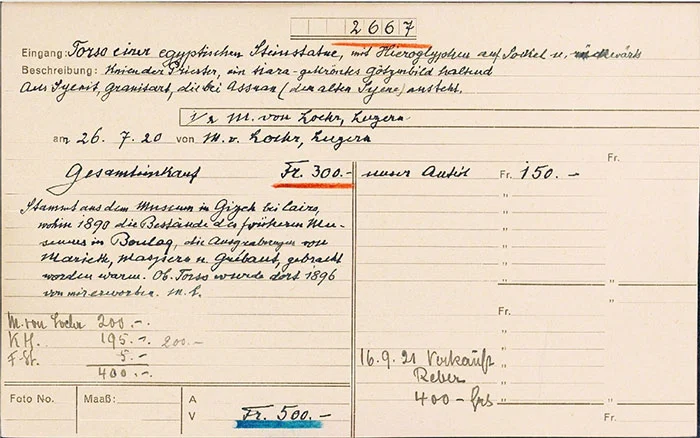 2667
Eingang: Torso einer egyptischen Steinstatue, mit Hieroglyphen auf Sockel u. rückwärts
Beschreibung: Kniender Priester, ein tiara-gekröntes Götzenbild haltend
Aus Syenit, Granitart, die bei Assuan (dem alten Syene) ansteht.
1/2 M. von Lochr, Luzern
am 26. 7. 20 von M. v. Lochr, Luzern
Fr.
Gesamteinkauf Fr. 300.- unser Anteil Fr. 150.-
Stammt aus dem Museum in Gizeh bei Cairo,
wohin 1890 die Bestände des früheren Mu-
seums in Boulaq, die Ausgrabungen von
Mariette, Maspero u. Grébaut, gebracht
worden waren. Ob. Torso wurde dort 1896
von mir erworben. M. L.
Fr.
M. von Lochr 200.-
K H. 195.- 200.-
F. St. 5.-
400.-
16. 9. 21 Verkauft
Reber
400.- frs
Foto No. Maaß: A
V Fr. 500.-
Fr.